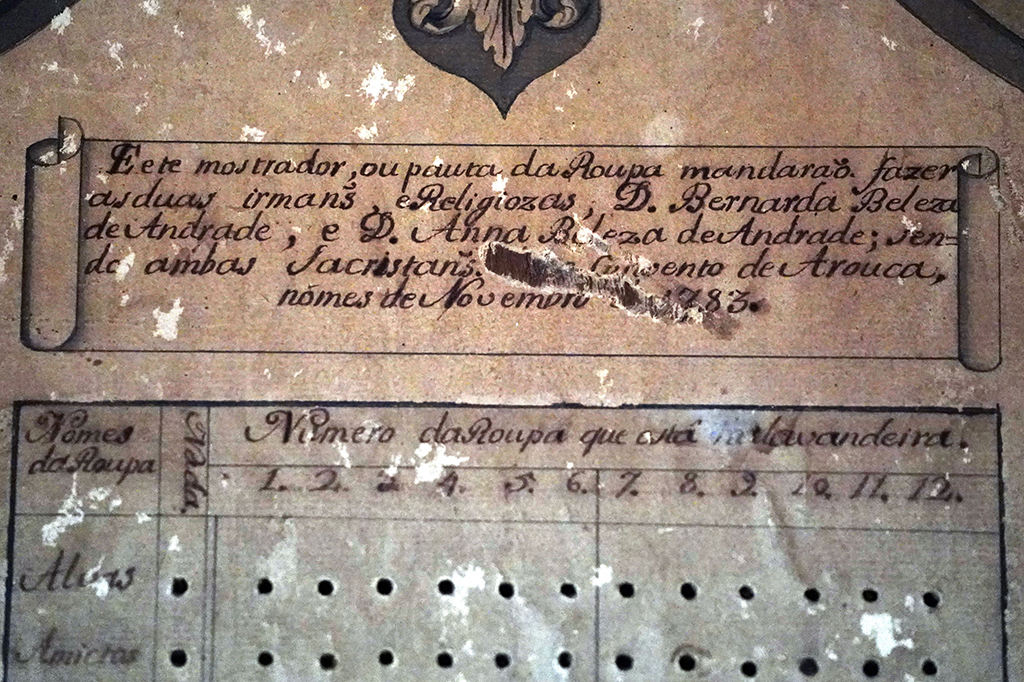 Eete mostrador, ou pauta da Roupa mandaraõ fazer
as duas irmans, e Religiozas, D. Bernarda Beleza
de Andrade, e D. Anna Beleza de Andrade; sen=
do ambas Sacristans. Convento de Arouca,
no mes de Novembro 1783.
Nomes da Roupa
Nada
Número da Roupa que está na lavandeira.
1. 2. 3 4. 5. 6. 7. 8. 9. 10. 11. 12.
Alvas
Amictos